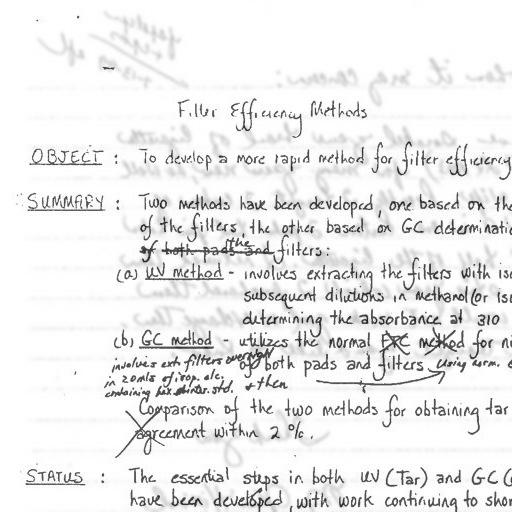 Filter Efficiency Methods
OBJECT : To develop a more rapid method for filter efficiency
SUMMARY : Two methods have been developed, one based on the
of the filters, the other based on GC determinati
of both pads and the filters:
(a) UV method - involves extracting the filters with iso
subsequent dilutions in methanol (or iso
determining the absorbance at 310
(b) GC method - utilizes the normal FTC method for ni
involves ext. filters overnight of both pads and filters using norm.
in 20 mls of isop. alc.
containing int. std. & then
Comparison of the two methods for obtaining tar
agreement within 2 %.
STATUS : The essential steps in both UV (Tar) and GC (
have been developed, with work continuing to shor